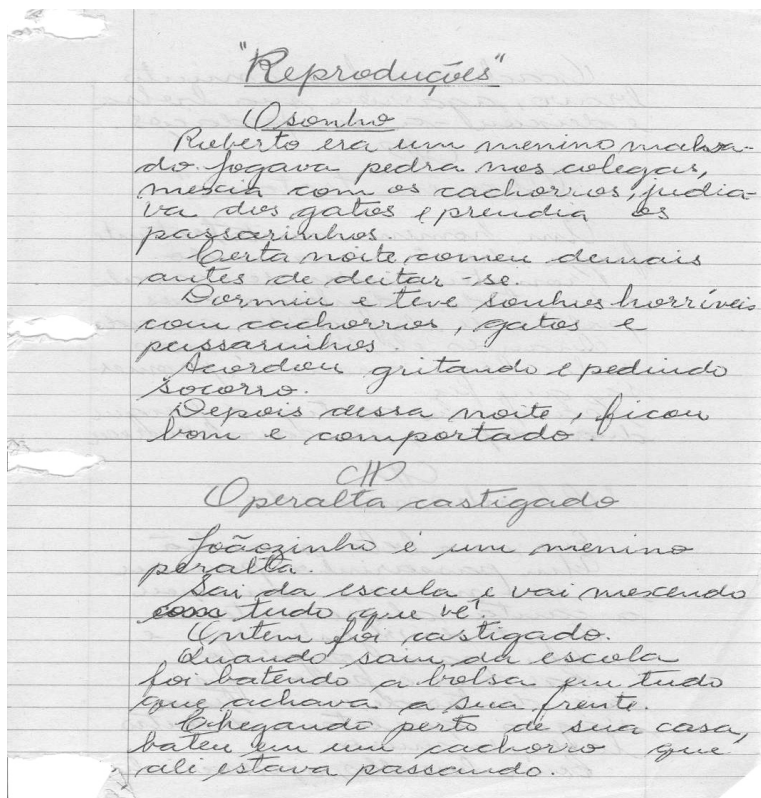 "Reproduções"
O sonho
Roberto era um menino malva-
do. Jogava pedra nos colegas,
mexia com os cachorros, judia-
va dos gatos e prendia os
passarinhos.
Certa noite comeu demais
antes de deitar-se.
Dormiu e teve sonhos horríveis
com cachorros, gatos e
passarinhos.
Acordou gritando e pedindo
socorro.
Depois dessa noite, ficou
bom e comportado.
O peralta castigado
Joãozinho é um menino
peralta.
Sai da escola e vai mexendo
com tudo que vê.
Ontem foi castigado.
Quando saiu da escola
foi batendo a bolsa em tudo
que achava a sua frente.
Chegando perto de sua casa,
bateu em um cachorro que
ali estava passando.